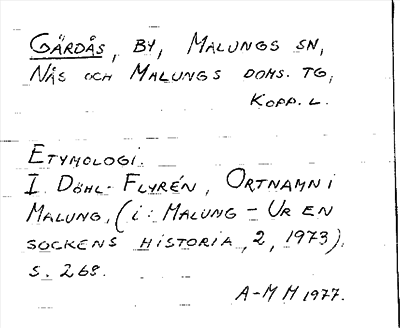 GÄRDÅS, BY, MALUNGS SN,
NÅS OCH MALUNGS DOMS. TG,
KOPP. L.
ETYMOLOGI.
I. DÖHL-FLYRÉN, ORTNAMN I
MALUNG, (i: MALUNG - UR EN
SOCKENS HISTORIA, 2, 1973),
S. 268.
A-M M 1977.